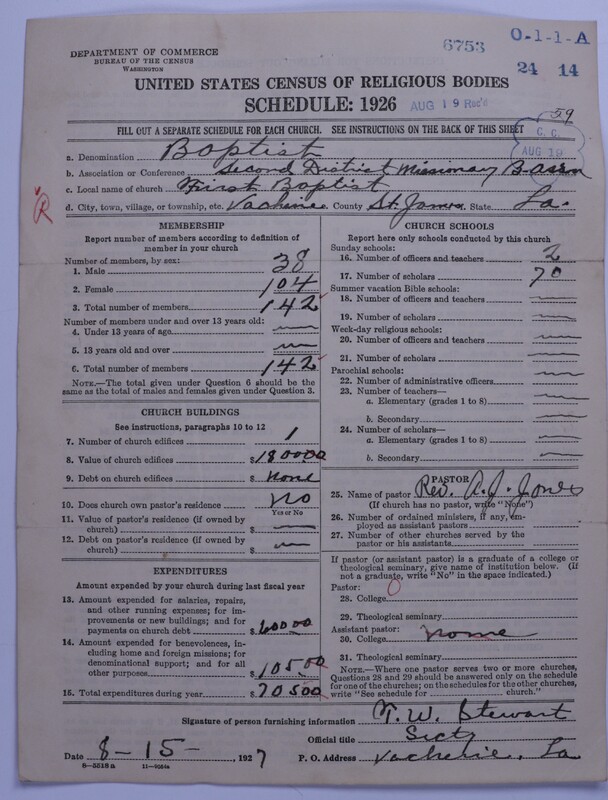 6753
O-1-1-A
DEPARTMENT OF COMMERCE
BUREAU OF THE CENSUS
WASHINGTON
24 14
UNITED STATES CENSUS OF RELIGIOUS BODIES
SCHEDULE: 1926
AUG 19 Rec'd
59
FILL OUT A SEPARATE SCHEDULE FOR EACH CHURCH. SEE INSTRUCTIONS ON THE BACK OF THIS SHEET
C. C.
AUG 19
a. Denomination Baptist
b. Association or Conference Second District Missionary B. Assn
c. Local name of church First Baptist
d. City, town, village, or township, etc. Vacherie County St. James State La.
R
MEMBERSHIP
Report number of members according to definition of
member in your church
Number of members, by sex:
1. Male 38
2. Female 104
3. Total number of members 142
Number of members under and over 13 years old:
4. Under 13 years of age
5. 13 years old and over
6. Total number of members 142
NOTE.—The total given under Question 6 should be
same as the total of males and females given under Question 3.
CHURCH BUILDINGS
See instructions, paragraphs 10 to 12
7. Number of church edifices 1
8. Value of church edifices $ 1800 00
9. Debt on church edifices $ none
10. Does church own pastor's residence? no
Yes or No
11. Value of pastor's residence (if owned by
church) $
12. Debt on pastor's residence (if owned by
church) $
EXPENDITURES
Amount expended by your church during last fiscal year
13. Amount expended for salaries, repairs,
and other running expenses; for im-
provements or new buildings; and for
payments on church debt $ 600 00
14. Amount expended for benevolences,
including home and foreign missions; for
denominational support; and for all
other purposes $ 105 00
15. Total expenditures during year $ 705 00
CHURCH SCHOOLS
Report here only schools conducted by this church
Sunday schools:
16. Number of officers and teachers 2
17. Number of scholars 70
Summer vacation Bible schools:
18. Number of officers and teachers
19. Number of scholars
Week-day religious schools:
20. Number of officers and teachers
21. Number of scholars
Parochial schools:
22. Number of administrative officers
23. Number of teachers—
a. Elementary (grades 1 to 8)
b. Secondary
24. Number of scholars—
a. Elementary (grades 1 to 8)
b. Secondary
PASTOR
25. Name of pastor Rev. A. J. Jones
(If church has no pastor, write "None")
26. Number of ordained ministers, if any, em-
ployed as assistant pastors
27. Number of other churches served by the
pastor or his assistants
If pastor (or assistant pastor) is a graduate of a college or
theological seminary, give name of institution below. (if
not a graduate, write "No" in the space indicated.)
Pastor:
28. College 0
29. Theological seminary
Assistant pastor:
30. College none
31. Theological seminary
NOTE.—Where one pastor serves two or more churches,
Questions 28 and 29 should be answered only on the schedule
for one of the churches; on the schedules for the other churches,
write "See schedule for church."
Signature of person furnishing information T. W. Stewart
Official title Secty
Date 8-15- 1927 P. O. Address Vacherie, La
8—5518a 11—9064a